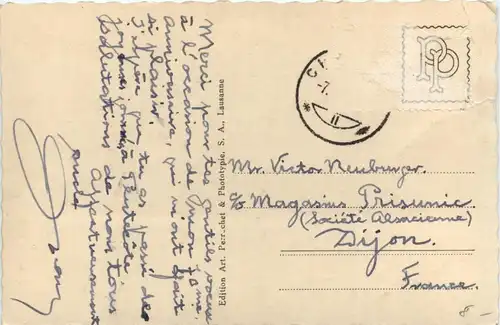 Merci pour tes gentils voeux
à l'occasion de mon 70me
anniversaire, qui m'ont fait
si plaisir.
J'espère que tu as passé de
joyeuses
Salutations de nous tous
Affectueusement
Edition Art. Perrochet & Phototypie. S. A., Lausanne
PP
Mr. Victor Neuburger.
c/o Magasins Prisunic
(Société Alsacienne)
Dijon.
France.
8 -